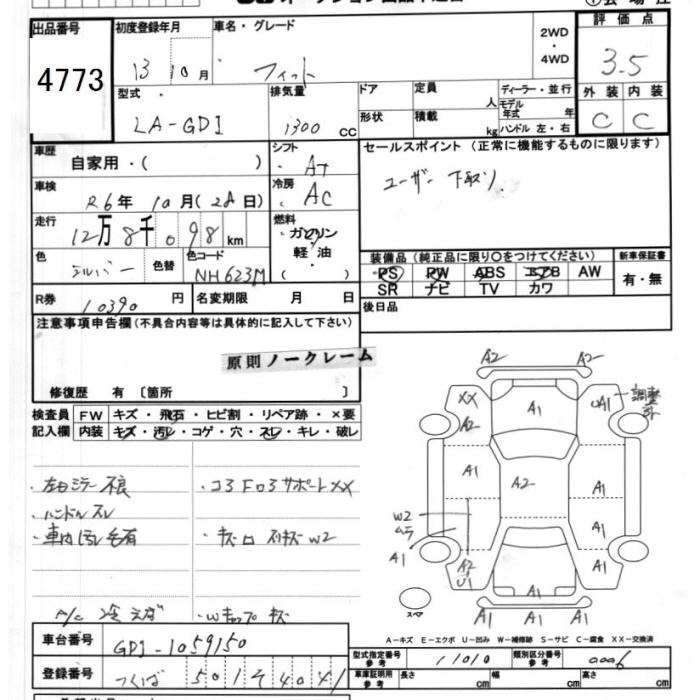 出品番号
4773
初度登録年月
13 10月
車名・グレード
フィット
2WD
・
4WD
評価点
3.5
外装 内装
C C
型式
LA-GD1
排気量
1300 CC
ドア
形状
定員 人
積載 kg
ディーラー・並行
モデル年式 年
ハンドル 左・右
車歴
自家用・( )
シフト
AT
冷房
AC
セールスポイント(正常に機能するものに限ります)
ユーザー下取り
車検
R6年 10月(28日)
走行
12万8千098km
燃料
ガソリン
軽油
( )
色
シルバー
色替
色コード
NH623M
装備品(純正品に限り○をつけてください)
PS PW ABS エアB AW
SR ナビ TV カワ
新車保証書
有・無
R券
10390円
名変期限 月 日
後日品
注意事項申告欄(不具合内容等は具体的に記入して下さい)
原則ノークレーム
修復歴 有 〔箇所 〕
検査員
記入欄
FW キズ・飛石・ヒビ割・リペア跡・×要
内装 キズ・汚レ・コゲ・穴・スレ・キレ・破レ
・左ミラー不良
・ハンドルスレ
・車内汚レ毛有
A/C 冷えず
・コ3 Fロ3サポートXX
W2
A2 A2
XX
A2
A1
A1
調整
A1
A2
A1
W2
ムラ
A1
A1
A2
U1
A1
A1 A1 A1
スペア
A-キズ E-エクボ U-凹み W-補修跡 S-サビ C-腐食 XX-交換済
車台番号
GD1-1059150
登録番号
つくば 501 そ 4041
型式指定番号
参考
11010
類別区分番号
参考
0006
車庫証明用
参考
長さ cm
幅 cm
高さ cm